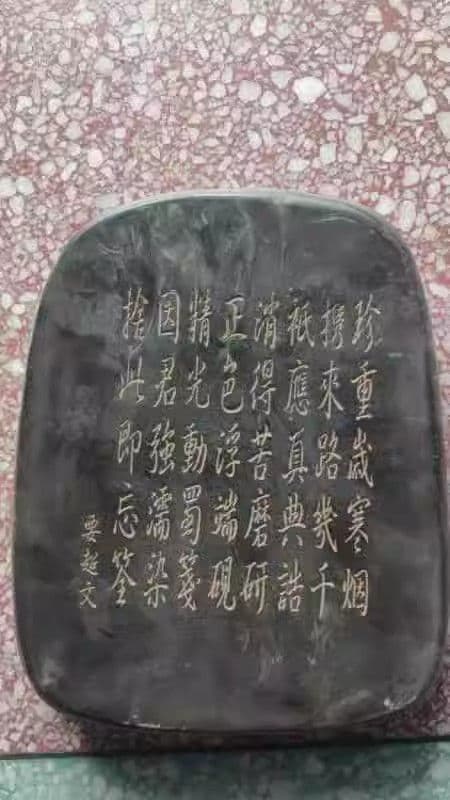 珍重歲寒烟
携來路幾千
祇應真典誥
消得苦磨研
正色浮端硯
精光動蜀箋
因君強濡染
捨此即忘筌
要超文